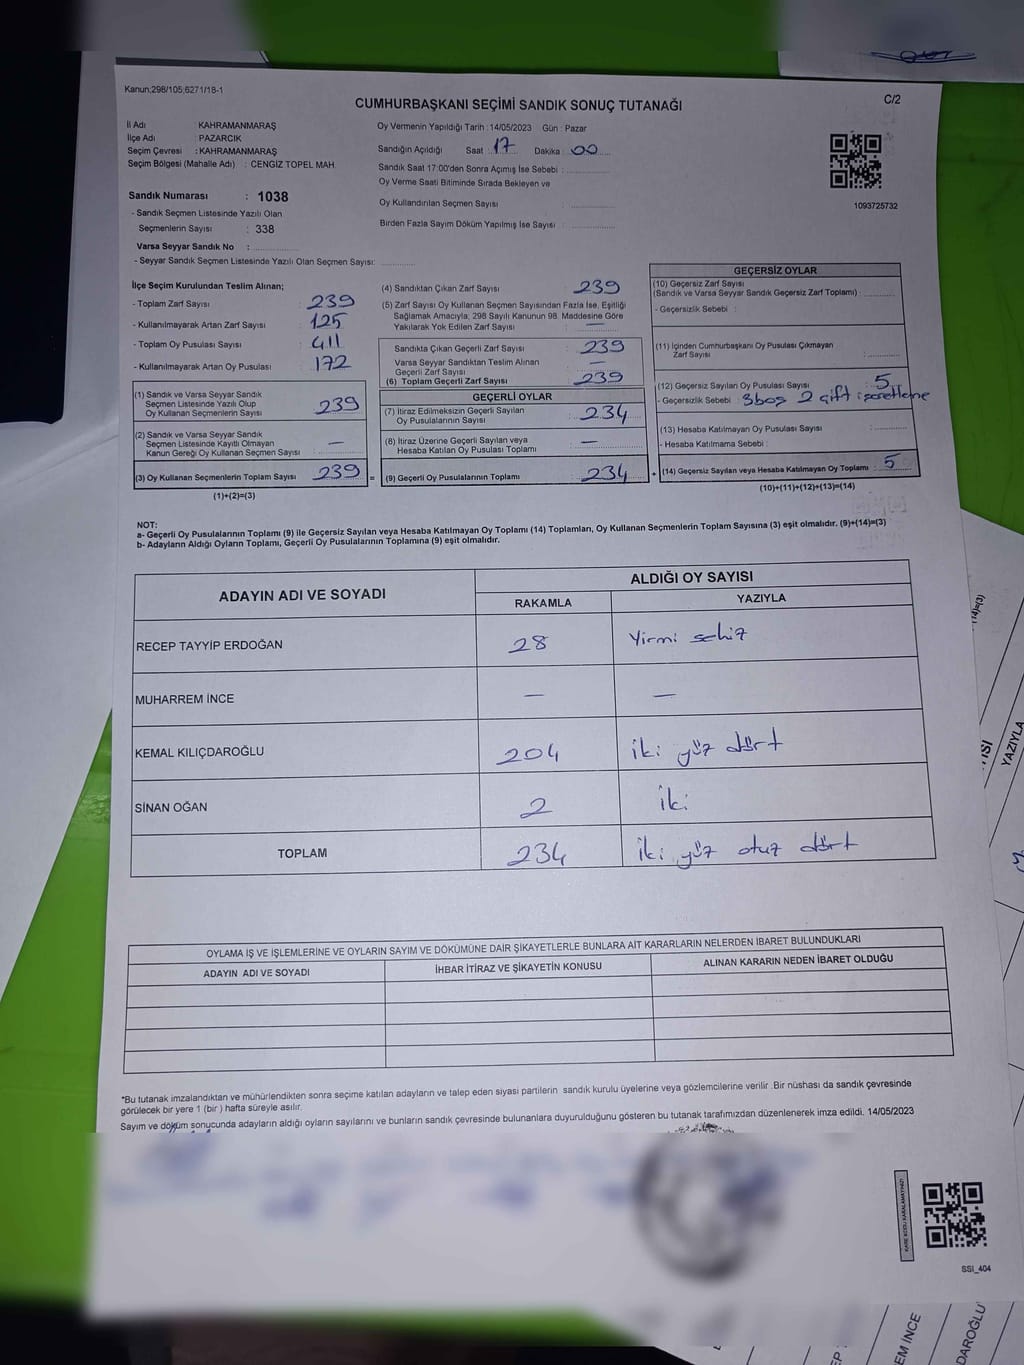 Kanun;298/105;6271/18-1
CUMHURBAŞKANI SEÇİMİ SANDIK SONUÇ TUTANAĞI
C/2
İl Adı : KAHRAMANMARAŞ
İlçe Adı : PAZARCIK
Seçim Çevresi : KAHRAMANMARAŞ
Seçim Bölgesi (Mahalle Adı) : CENGİZ TOPEL MAH.
Sandık Numarası : 1038
- Sandık Seçmen Listesinde Yazılı Olan
Seçmenlerin Sayısı : 338
Varsa Seyyar Sandık No :
- Seyyar Sandık Seçmen Listesinde Yazılı Olan Seçmen Sayısı:
Oy Vermenin Yapıldığı Tarih : 14/05/2023 Gün : Pazar
Sandığın Açıldığı Saat : 17 Dakika : 00
Sandık Saat 17:00'den Sonra Açımış İse Sebebi :
Oy Verme Saati Bitiminde Sırada Bekleyen ve
Oy Kullandırılan Seçmen Sayısı :
Birden Fazla Sayım Döküm Yapılmış İse Sayısı :
1093725732
İlçe Seçim Kurulundan Teslim Alınan;
- Toplam Zarf Sayısı : 239
- Kullanılmayarak Artan Zarf Sayısı : 125
- Toplam Oy Pusulası Sayısı : 411
- Kullanılmayarak Artan Oy Pusulası : 172
(1) Sandık ve Varsa Seyyar Sandık
Seçmen Listesinde Yazılı Olup
Oy Kullanan Seçmenlerin Sayısı : 239
(2) Sandık ve Varsa Seyyar Sandık
Seçmen Listesinde Kayıtlı Olmayan
Kanun Gereği Oy Kullanan Seçmen Sayısı : —
(3) Oy Kullanan Seçmenlerin Toplam Sayısı : 239 =
(1)+(2)=(3)
(4) Sandıktan Çıkan Zarf Sayısı : 239
(5) Zarf Sayısı Oy Kullanan Seçmen Sayısından Fazla İse, Eşitliği
Sağlamak Amacıyla, 298 Sayılı Kanunun 98. Maddesine Göre
Yakılarak Yok Edilen Zarf Sayısı : —
Sandıkta Çıkan Geçerli Zarf Sayısı : 239
Varsa Seyyar Sandıktan Teslim Alınan
Geçerli Zarf Sayısı : —
(6) Toplam Geçerli Zarf Sayısı : 239
GEÇERLİ OYLAR
(7) İtiraz Edilmeksizin Geçerli Sayılan
Oy Pusulalarının Sayısı : 234
(8) İtiraz Üzerine Geçerli Sayılan veya
Hesaba Katılan Oy Pusulası Toplamı : —
(9) Geçerli Oy Pusulalarının Toplamı : 234 +
GEÇERSİZ OYLAR
(10) Geçersiz Zarf Sayısı
(Sandık ve Varsa Seyyar Sandık Geçersiz Zarf Toplamı) :
- Geçersizlik Sebebi :
(11) İçinden Cumhurbaşkanı Oy Pusulası Çıkmayan
Zarf Sayısı :
(12) Geçersiz Sayılan Oy Pusulası Sayısı : 5
- Geçersizlik Sebebi : 3boş 2 çift işaretleme
(13) Hesaba Katılmayan Oy Pusulası Sayısı :
- Hesaba Katılmama Sebebi :
(14) Geçersiz Sayılan veya Hesaba Katılmayan Oy Toplamı : 5
(10)+(11)+(12)+(13)=(14)
NOT:
a- Geçerli Oy Pusulalarının Toplamı (9) ile Geçersiz Sayılan veya Hesaba Katılmayan Oy Toplamı (14) Toplamları, Oy Kullanan Seçmenlerin Toplam Sayısına (3) eşit olmalıdır. (9)+(14)=(3)
b- Adayların Aldığı Oyların Toplamı, Geçerli Oy Pusulalarının Toplamına (9) eşit olmalıdır.
ADAYIN ADI VE SOYADI
ALDIĞI OY SAYISI
RAKAMLA YAZIYLA
RECEP TAYYİP ERDOĞAN 28 Yirmi sekiz
MUHARREM İNCE — —
KEMAL KILIÇDAROĞLU 204 iki yüz dört
SİNAN OĞAN 2 iki
TOPLAM 234 iki yüz otuz dört
OYLAMA İŞ VE İŞLEMLERİNE VE OYLARIN SAYIM VE DÖKÜMÜNE DAİR ŞİKAYETLERLE BUNLARA AİT KARARLARIN NELERDEN İBARET BULUNDUKLARI
ADAYIN ADI VE SOYADI İHBAR İTİRAZ VE ŞİKAYETİN KONUSU ALINAN KARARIN NEDEN İBARET OLDUĞU
*Bu tutanak imzalandıktan ve mühürlendikten sonra seçime katılan adayların ve talep eden siyasi partilerin sandık kurulu üyelerine veya gözlemcilerine verilir. Bir nüshası da sandık çevresinde
görülecek bir yere 1 (bir ) hafta süreyle asılır.
Sayım ve döküm sonucunda adayların aldığı oyların sayılarını ve bunların sandık çevresinde bulunanlara duyurulduğunu gösteren bu tutanak tarafımızdan düzenlenerek imza edildi. 14/05/2023
KARE KODU KARALAMAYINIZ!
SSI_404
(14)=(3)
YAZIYLA
EM İNCE
DAROĞLU